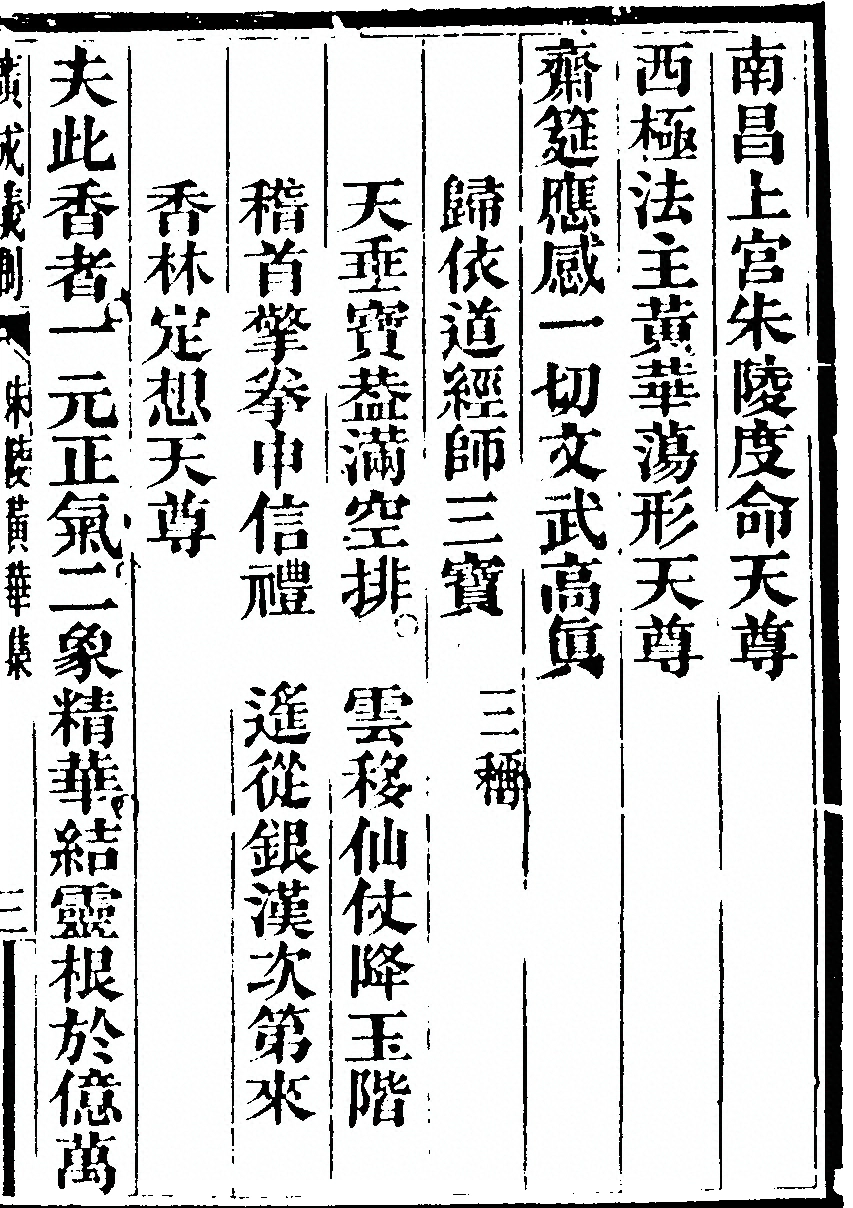 南昌上宮朱陵度命天尊
西極法主黃華蕩形天尊
齋筵應感一切文武高眞
歸依道經師三寶 三稱
天垂寶葢滿空排 雲移仙仗降玉階
稽首擎拳申信禮 遙從銀漢次第來
香林定想天尊
夫此香者一元正氣二象精華結靈根於億萬
廣成儀制 朱陵黃華集 三